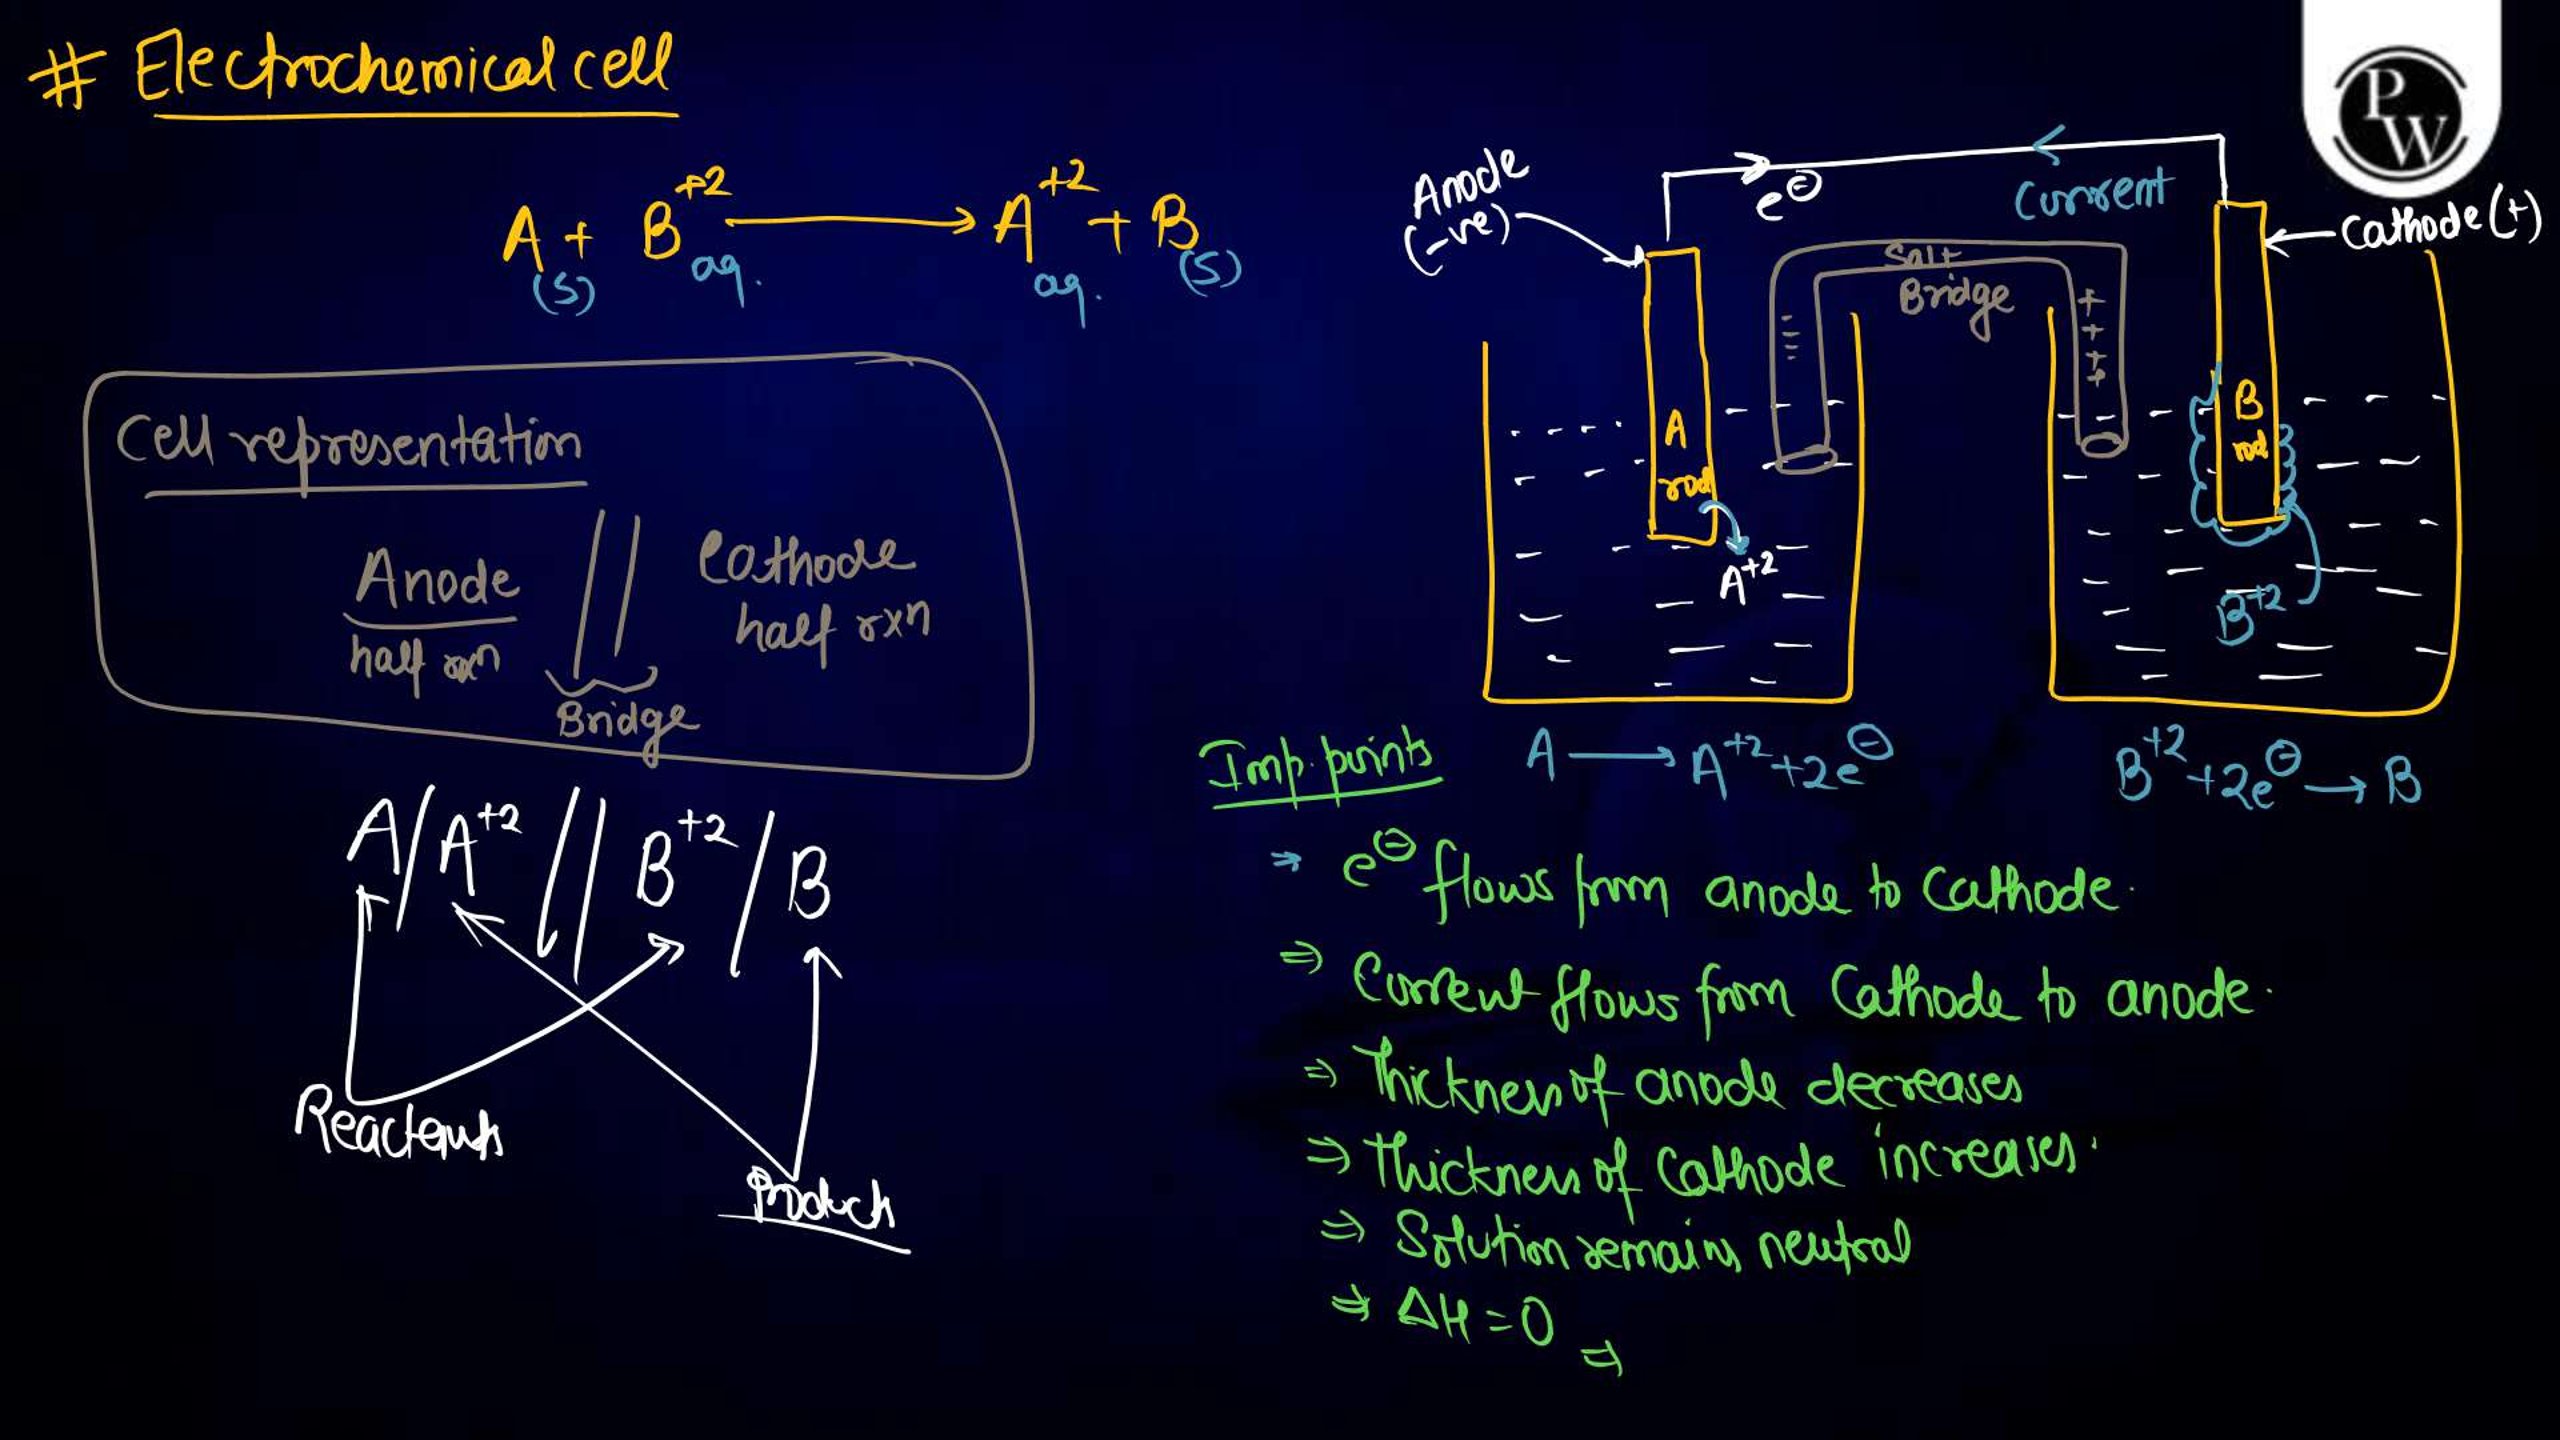 # Electrochemical cell
A(s) + B+2 aq. → A+2 aq. + B(s)
Cell representation
Anode half rxn // Cathode half rxn
Bridge
A/A+2 // B+2/B
Reactants
Products
PW
Anode (-ve)
e⊖
Current
Cathode (+)
Salt Bridge
- - - -
+ + + +
A rod
A+2
B rod
B+2
A → A+2 + 2e⊖
B+2 + 2e⊖ → B
Imp. points
→ e⊖ flows from anode to cathode.
⇒ Current flows from Cathode to anode.
⇒ Thickness of anode decreases
⇒ Thickness of Cathode increases.
⇒ Solution remains neutral
⇒ ΔH = 0
⇒